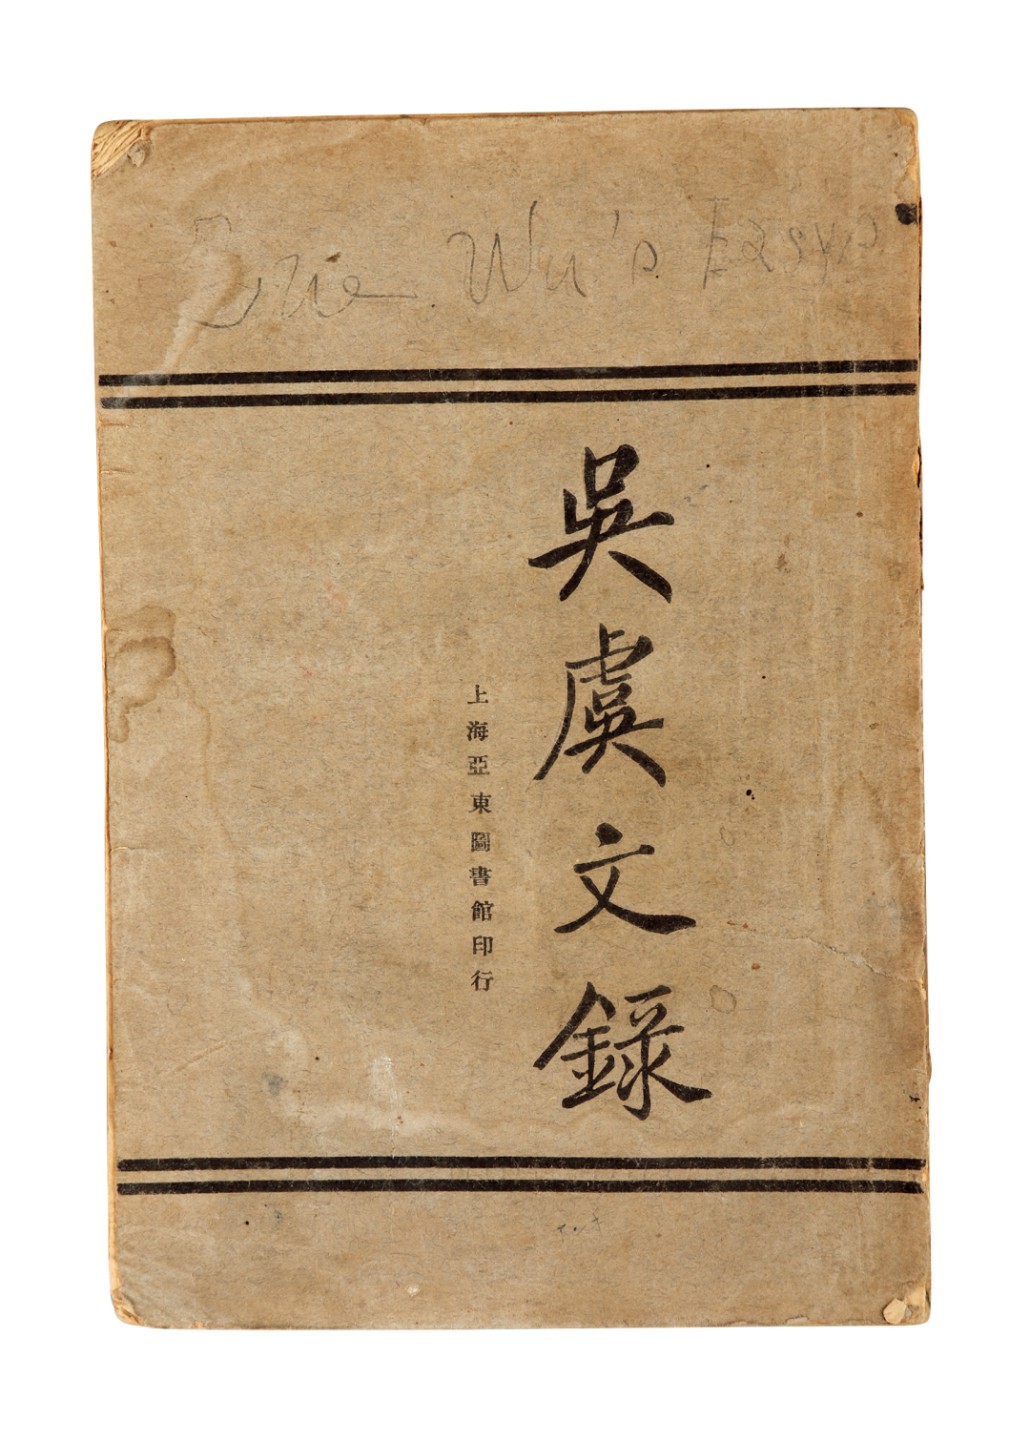 Wu's Essays
吳虞文錄
上海亞東圖書館印行